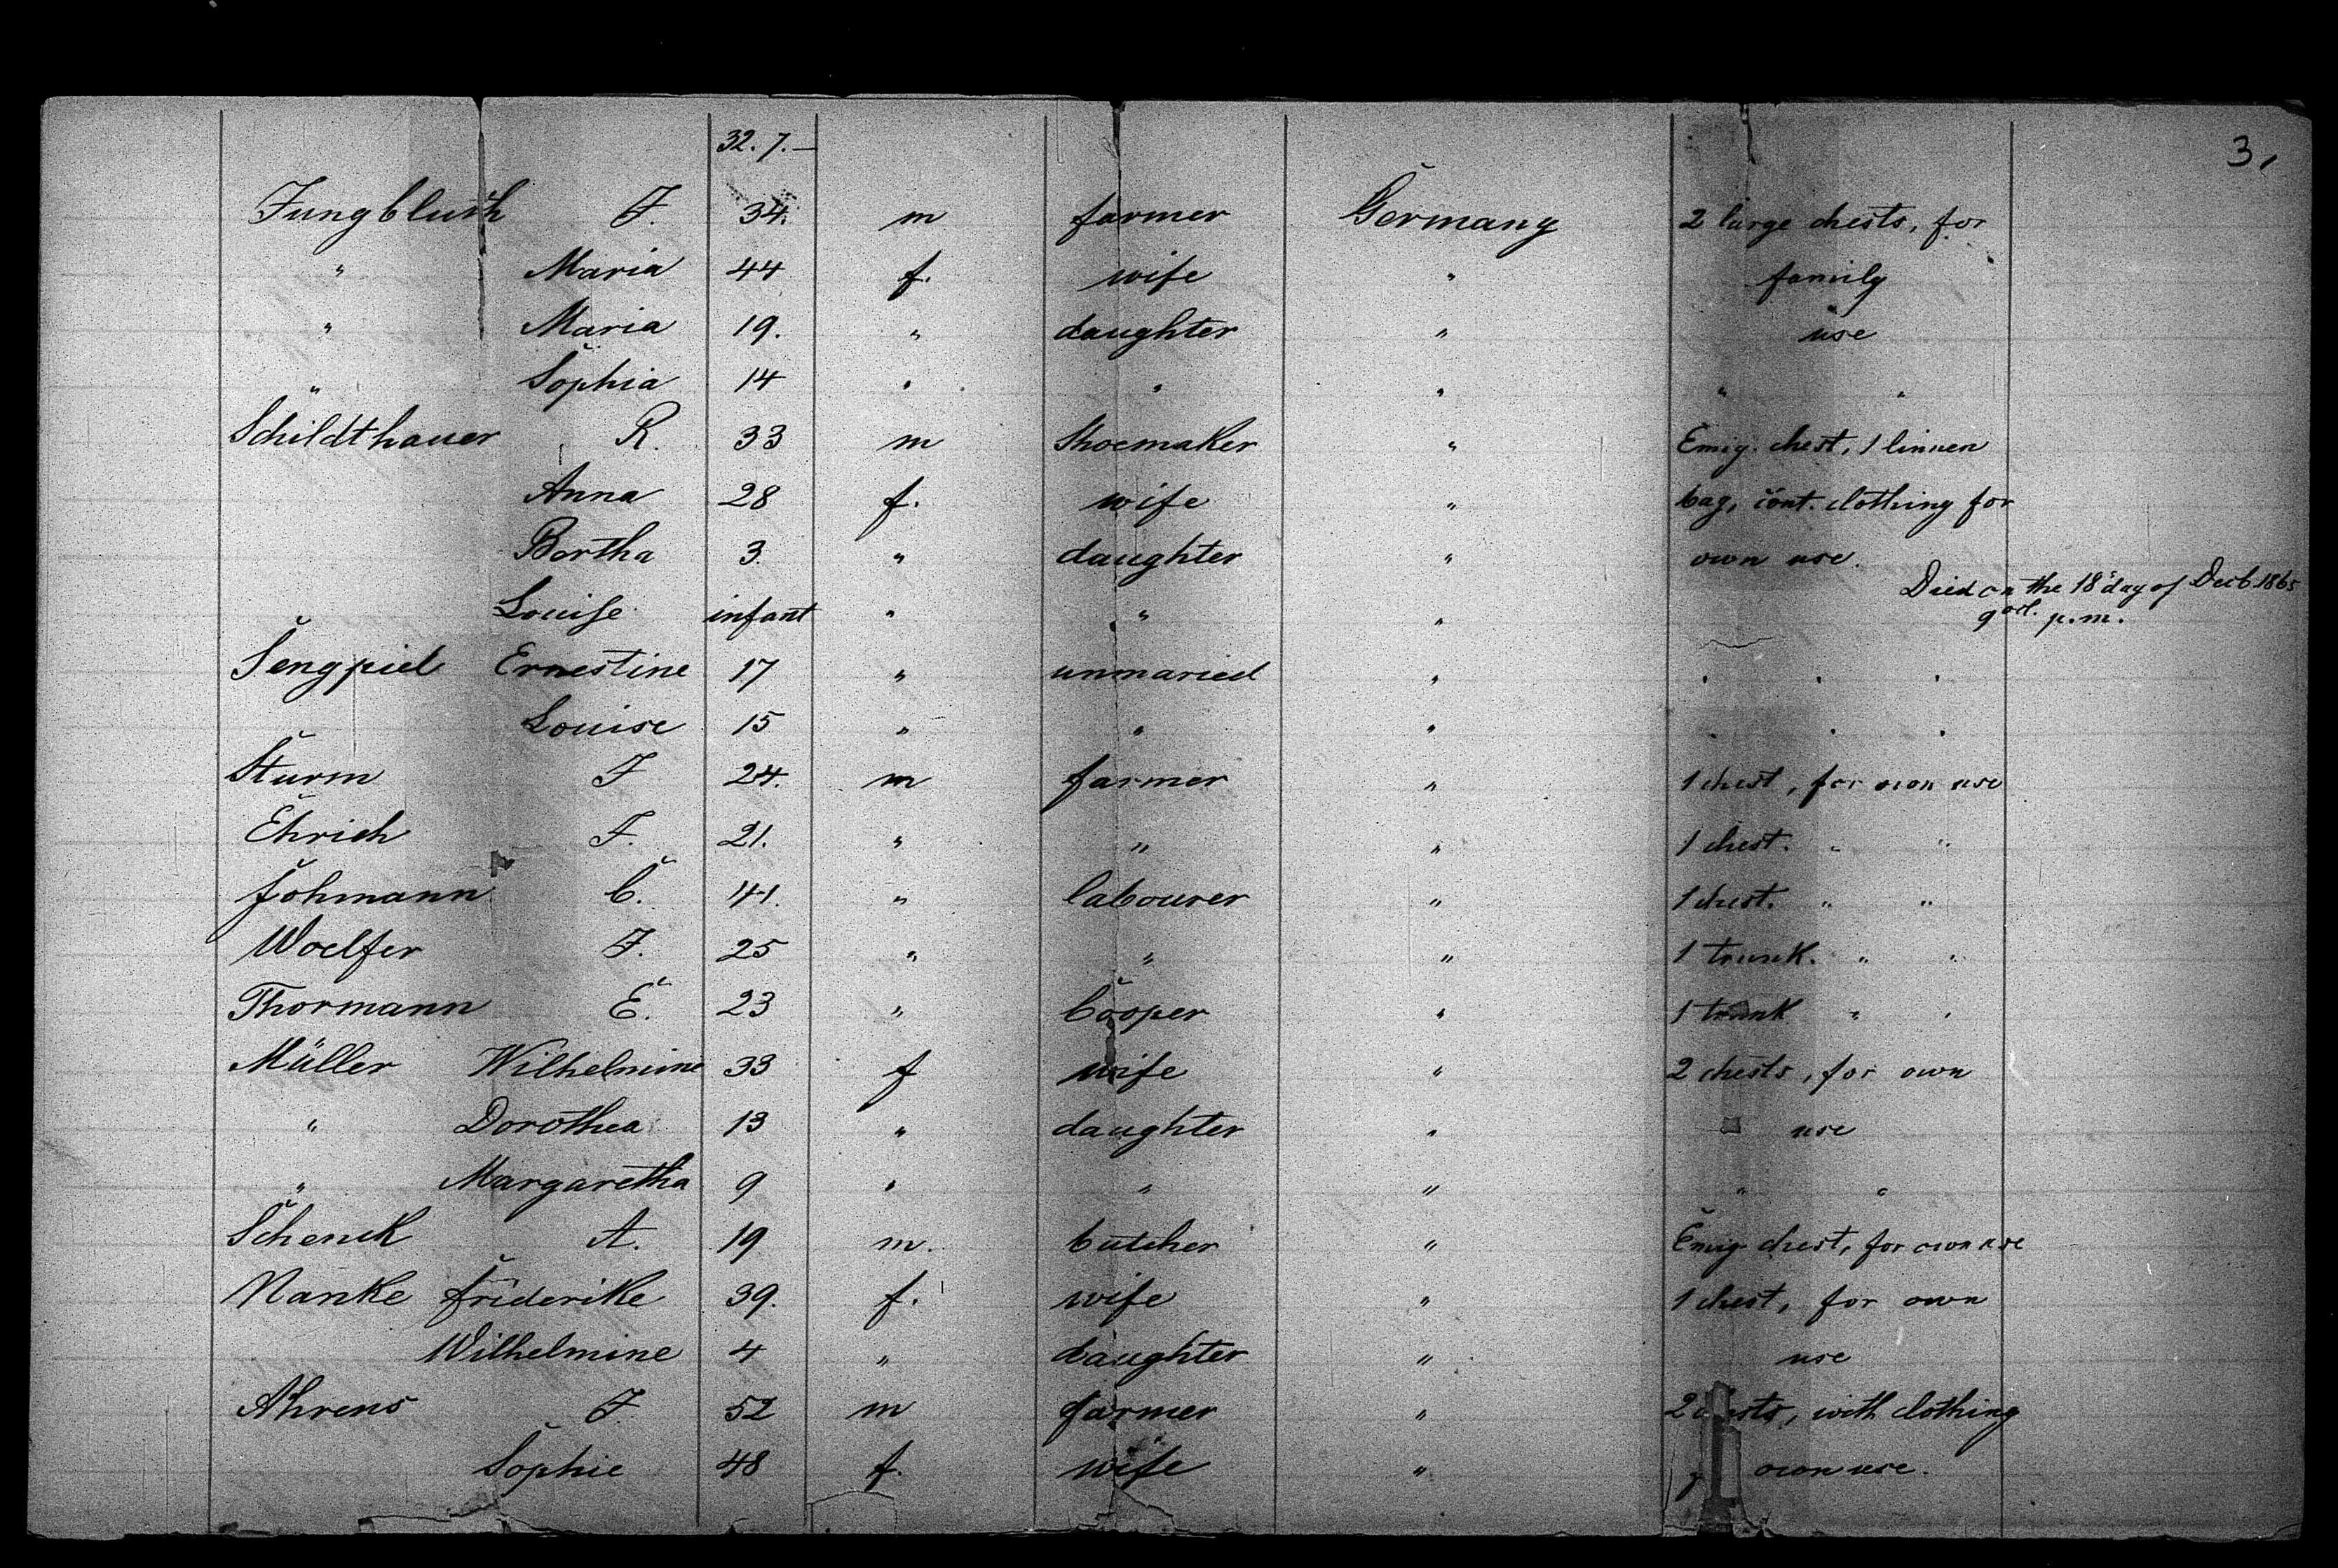 32. 7. —
3,
Jungbluth J. 34. m farmer Germany 2 large chests, for
" Maria 44 f. wife " family
" Maria 19. " daughter " use
" Sophia 14 " " " " "
Schildthauer R. 33 m Shoemaker " Emig. chest, 1 linnen
Anna 28 f. wife " bag, cont. clothing for
Bertha 3. " daughter " own use.
Louise infant " " " Died on the 18 day of Decb. 1865
p.m.
Sengpiel Ernestine 17 " unmaried " " " "
Louise 15 " " " " " "
Sturm J 24. m farmer " 1 chest, for own use
Ehrich F. 21. " " " 1 chest. " "
Johmann C. 41. " labourer " 1 chest. " "
Woelfer J. 25 " " " 1 trunk. " "
Thormann E. 23 " Cooper " 1 trunk " "
Müller Wilhelmine 33 f wife " 2 chests, for own
" Dorothea 13 " daughter " use
" Margaretha 9 " " " " "
Schenck A. 19 m. butcher " Emig chest, for own use
Nanke Friderike 39. f. wife " 1 chest, for own
Wilhelmine 4 " daughter " use
Ahrens J. 52 m farmer " 2 chests, with clothing
Sophie 48 f. wife " own use.